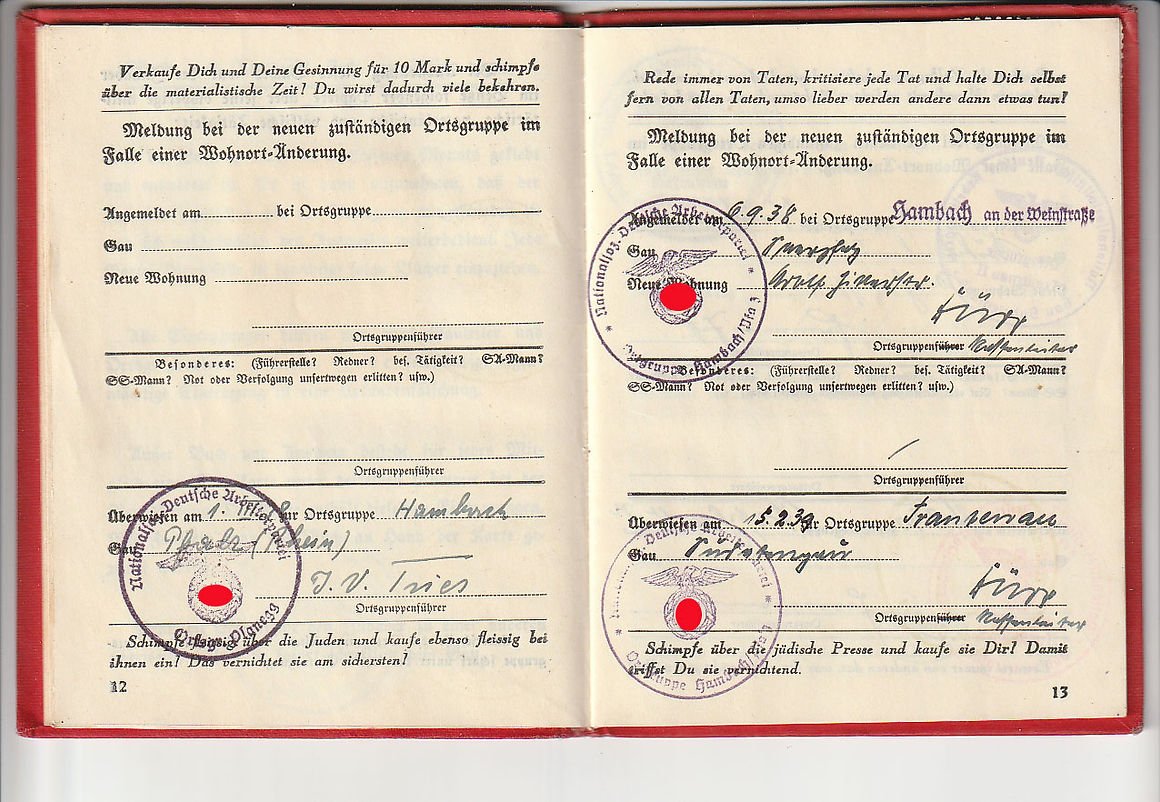 Verkaufe Dich und Deine Gesinnung für 10 Mark und schimpfe
über die materialistische Zeit! Du wirst dadurch viele bekehren.
Meldung bei der neuen zuständigen Ortsgruppe im
Falle einer Wohnort-Änderung.
Angemeldet am bei Ortsgruppe
Gau
Neue Wohnung
Ortsgruppenführer
Besonderes: (Führerstelle? Redner? bes. Tätigkeit? SA-Mann?
SS-Mann? Not oder Verfolgung unsertwegen erlitten? usw.)
Ortsgruppenführer
Überwiesen am 1. zur Ortsgruppe Hambach
Gau Pfalz (Rhein)
J. V. Tries
Ortsgruppenführer
Nationalsoz. Deutsche Arbeiterpartei
Ortsgr. Planegg
Schimpfe fleissig über die Juden und kaufe ebenso fleissig bei
ihnen ein! Das vernichtet sie am sichersten!
12
Rede immer von Taten, kritisiere jede Tat und halte Dich selbst
fern von allen Taten, umso lieber werden andere dann etwas tun!
Meldung bei der neuen zuständigen Ortsgruppe im
Falle einer Wohnort-Änderung.
Angemeldet am 6.9.38 bei Ortsgruppe Hambach an der Weinstraße
Gau Saarpfalz
Neue Wohnung Adolf Hitlerstr.
Ortsgruppenführer Kassenleiter
Nationalsoz. Deutsche Arbeiterpartei
Ortsgruppe Hambach/Pfalz
Besonderes: (Führerstelle? Redner? bes. Tätigkeit? SA-Mann?
SS-Mann? Not oder Verfolgung unsertwegen erlitten? usw.)
Ortsgruppenführer
Überwiesen am 15.2.39 zur Ortsgruppe Trautenau
Gau Sudetengau
Ortsgruppenführer Kassenleiter
Deutsche Arbeiterpartei
Ortsgruppe Hambach/Pfalz
Schimpfe über die jüdische Presse und kaufe sie Dir! Damit
triffst Du sie vernichtend.
13